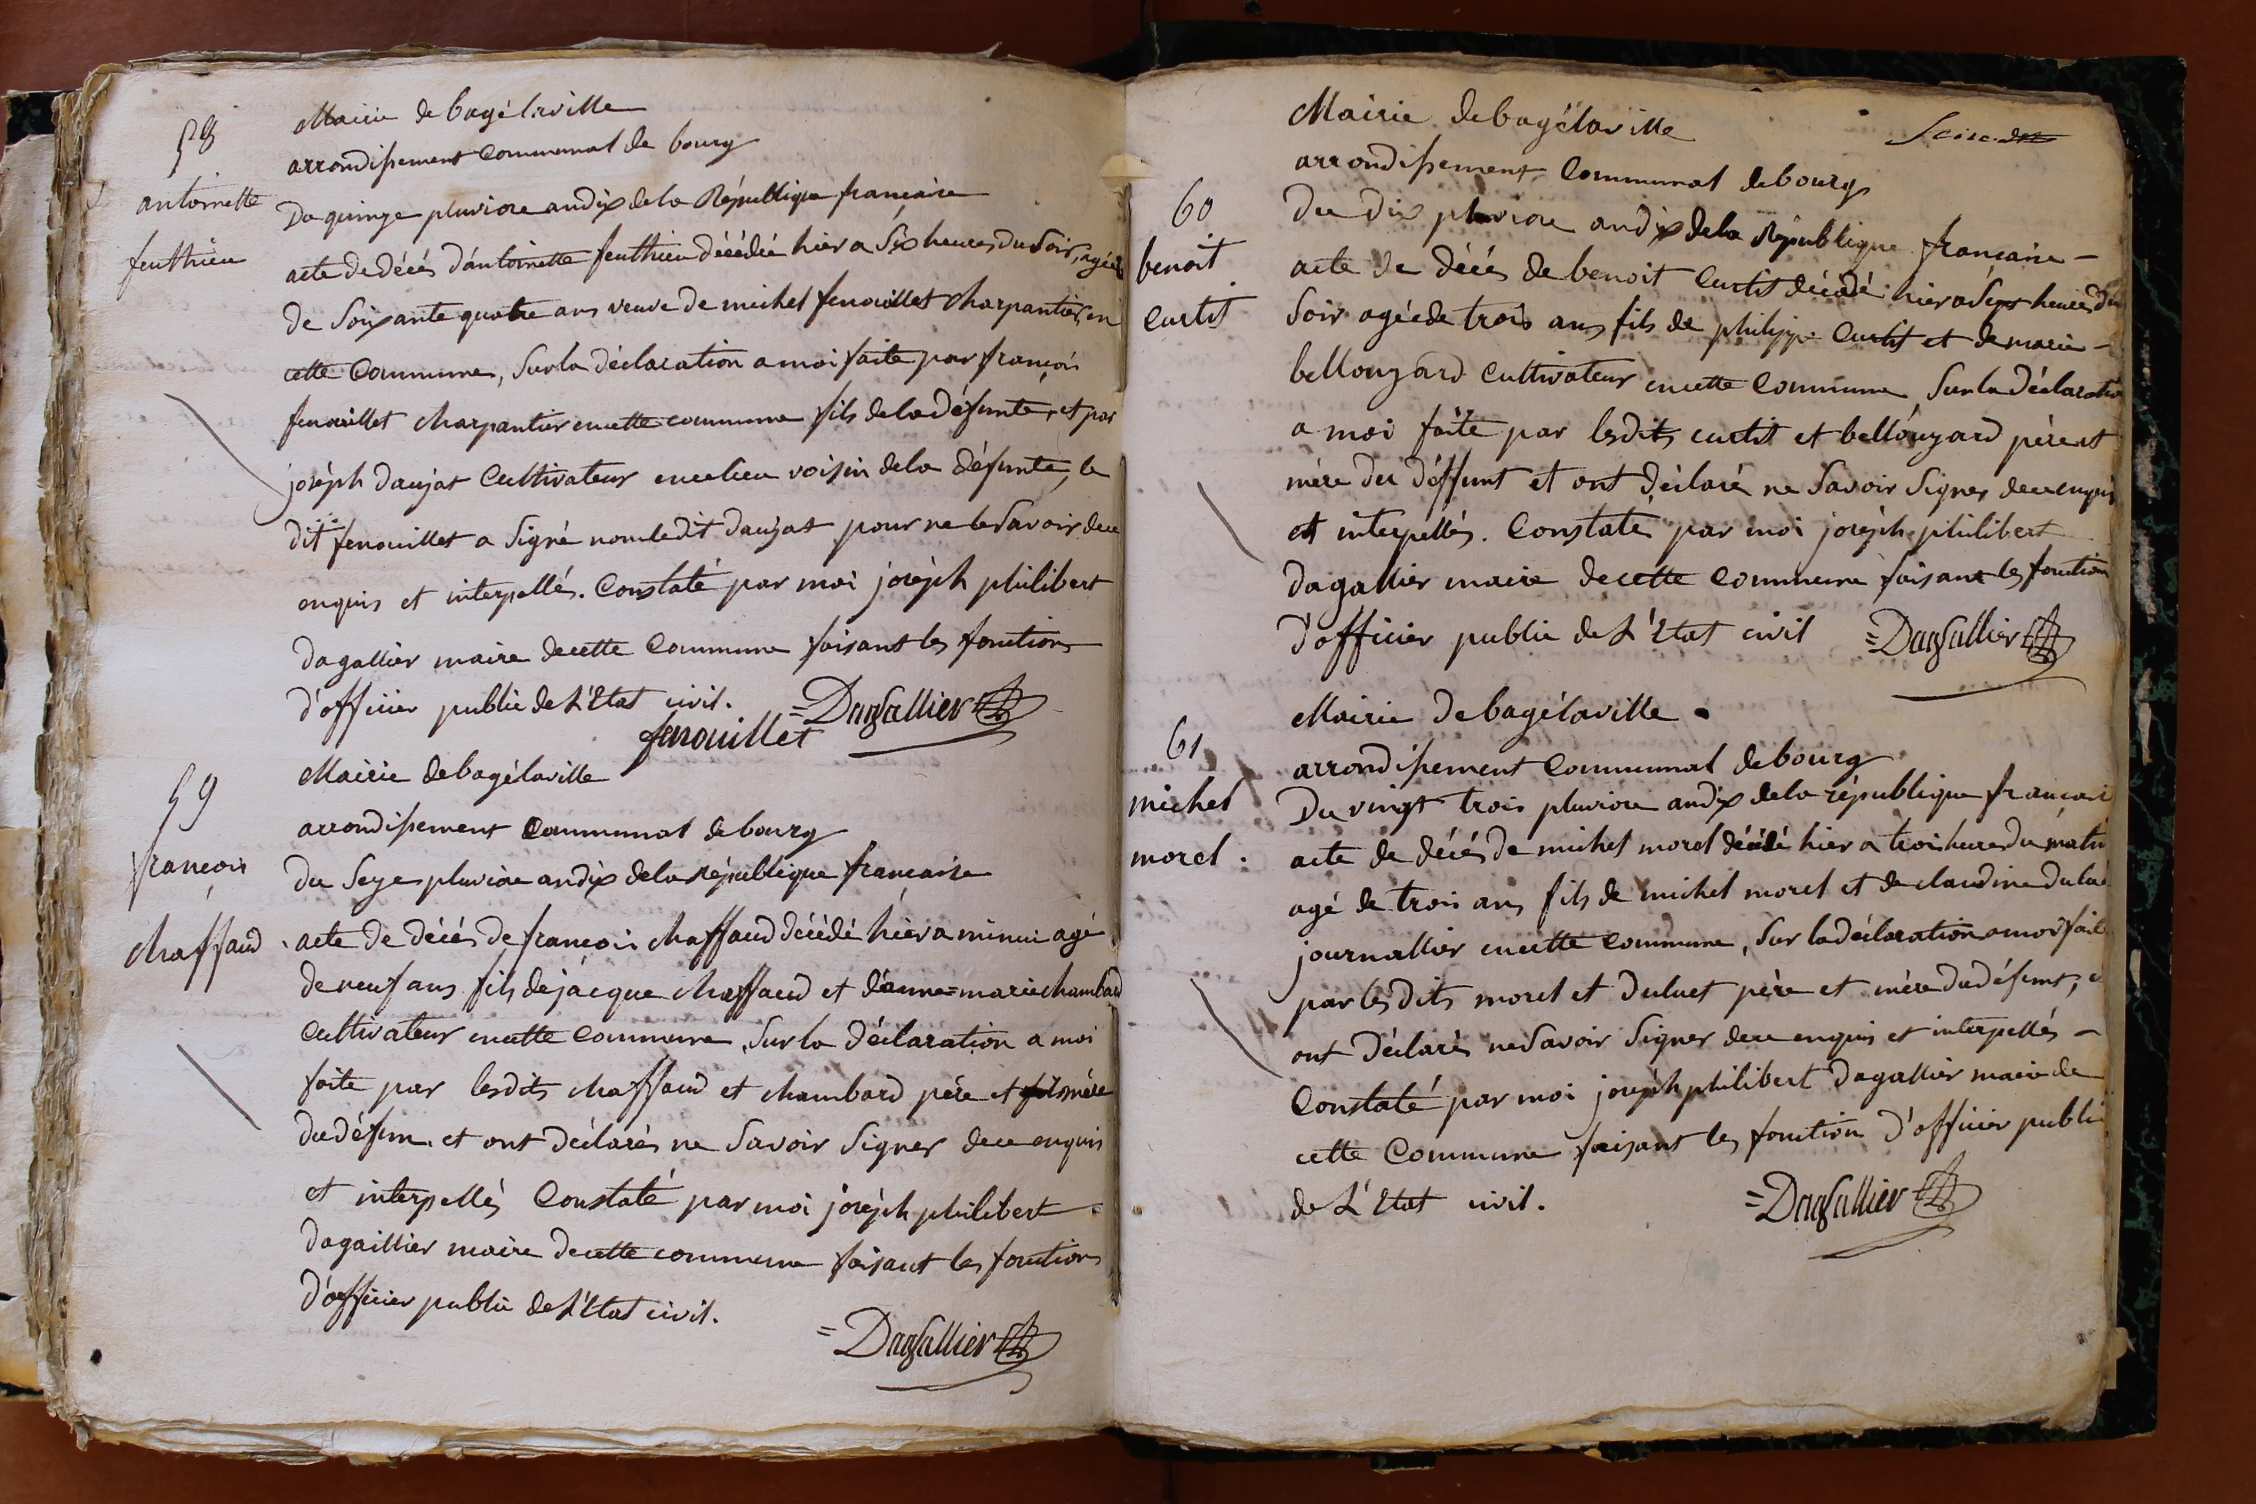 58
antoinette
feuthieu
Mairie de bagélaville
arrondissement Communal de bourg
Du quinze pluviose an dix de la République francaise
acte de décés d'antoinette feuthieu décédée hier a six heures du soir, agée
de soixante quatre ans veuve de michel fenouillet charpantier en
cette Commune, sur la déclaration a moi faite par françois
fenouillet charpantier en cette commune fils de la défunte, et par
joséph daujat Cultivateur en ce lieu voisin de la défunte, le
dit fenouillet a signé non ledit daujat pour ne le savoir de ce
enquis et interpellés. Constaté par moi joséph philibert
dagallier maire de cette Commune faisant les fonctions
d'officier public de L'Etat civil. =Dagallier
fenouillet
59
françois
chaffaud
Mairie de bagélaville
arrondissement Communal de bourg
du seze pluviose an dix de la république francaise
acte de décés de francois chaffaud décédé hier a minui agé
de neuf ans fils de jacque chaffaud et d'anne=marie chambard
Cultivateur en cette Commune, sur la déclaration a moi
faite par lesdits chaffaud et chambard pére et mére
du défun et ont déclarés ne savoir signer de ce enquis
et interpellés Constaté par moi joséph philibert
dagaillier maire de cette commune faisant les fonctions
d'officier public de L'Etat civil.
=Dagallier
60
benoit
curtit
Mairie de bagélaville
arrondissement Communal de bourg
du dix pluviose an dix de la République francaise -
acte de décés de benoit Curtit décédé hier a sept heures du
soir agée de trois ans fils de philippe Curtit et de marie -
bellouzard Cultivateur en cette Commune sur la déclaration
a moi faite par lesdits curtit et bellouzard pére et
mére du déffunt et ont déclaré ne savoir signer de ce enquis
et interpéllés. Constaté par moi joséph philibert
dagallier maire de cette Commune faisant les fonction
d'officier public de L'Etat civil =Dagallier
61
michel
morel.
Mairie de bagélaville.
arrondissement Communal de bourg
Du vingt trois pluviose an dix de la république francaise
acte de décés de michel morel décédé hier a trois heures du matin
agé de trois ans fils de michel morel et de claudine duluet
journallier en cette Commune, sur la déclaration a moi faite
par les dits morel et duluet père et mére du défunt, et
ont déclarés ne savoir signer de ce enquis et interpellés -
Constaté par moi joséph philibert dagallier maire de
cette Commune faisant les fonction d'officier public
de L'Etat civil.
=Dagallier